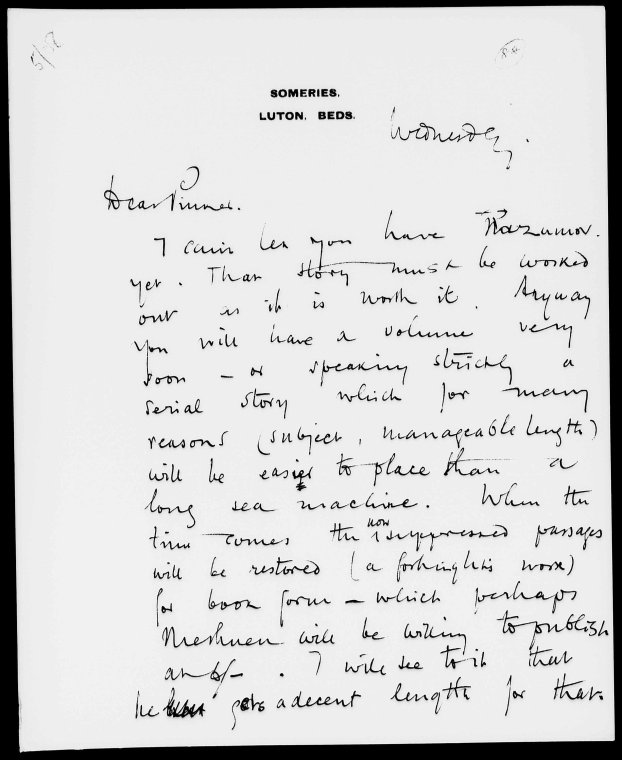 5/58
SOMERIES.
LUTON, BEDS.
Wednesday.
Dear Pinker.
I can't let you have Razumov.
yet. That story must be worked
out as it is worth it. Anyway
you will have a volume very
soon – or speaking strictly a
serial story which for many
reasons (subject, manageable length)
will be easier to place than a
long sea machine. When the
time comes the now suppressed passages
will be restored (a fortnight's work)
for book form – which perhaps
Methuen will be willing to publish
at 6/- . I will see to it that
he gets a decent length for that.